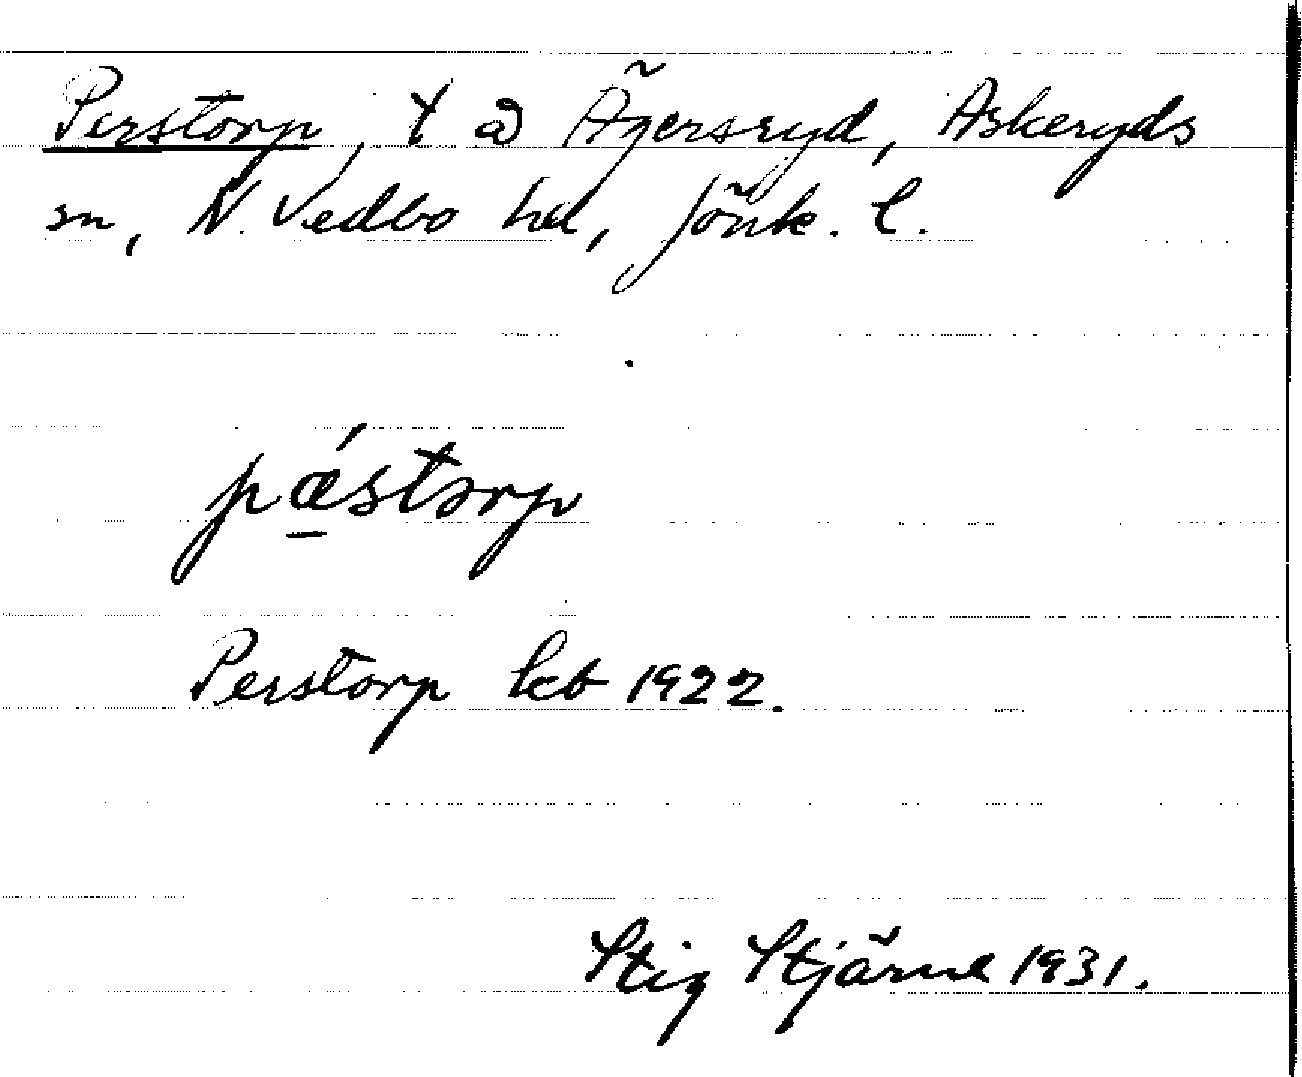 Perstorp, t å Ägersryd, Askeryds
sn, N. Vedbo hd, Jönk. l.
pǽstorp
Perstorp kb 1922.
Stig Stjärne 1931.